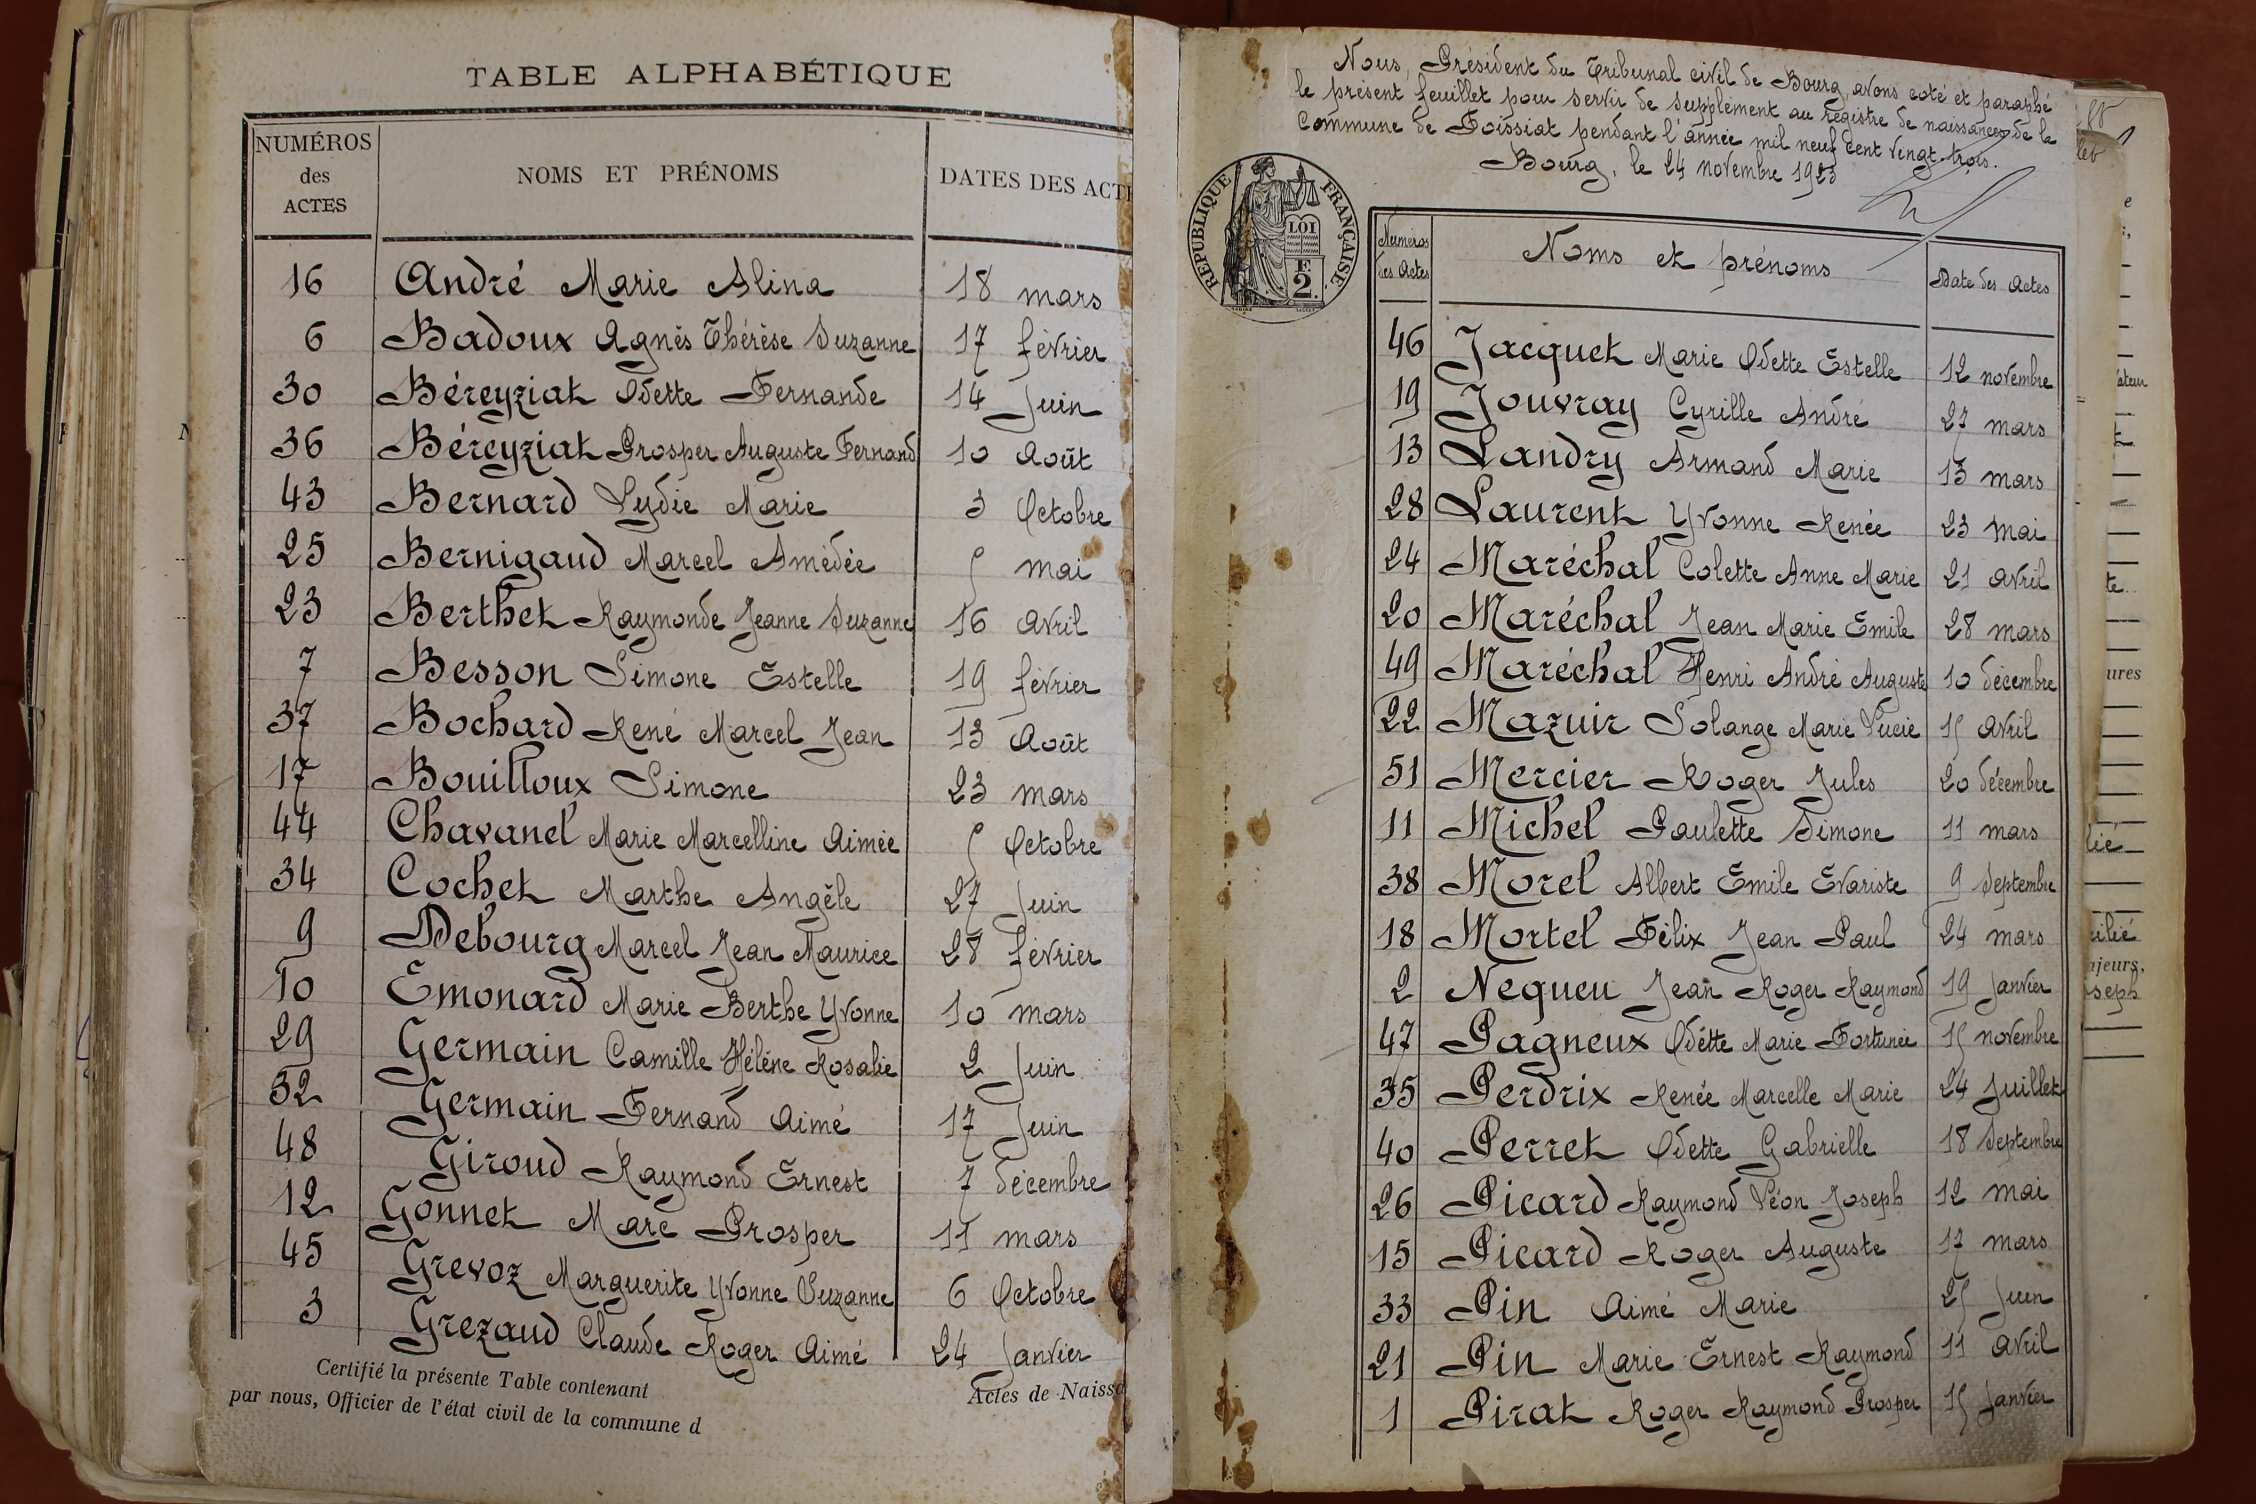 TABLE ALPHABÉTIQUE
NUMÉROS des ACTES NOMS ET PRÉNOMS DATES DES ACT
16 André Marie Alina 18 mars
6 Badoux Agnès Thérèse Suzanne 17 février
30 Béreyziat Odette Fernande 14 Juin
36 Béreyziat Prosper Auguste Fernand 10 Août
43 Bernard Lydie Marie 3 Octobre
25 Bernigaud Marcel Amédée 5 mai
23 Berthet Raymonde Jeanne Suzanne 16 Avril
7 Besson Simone Estelle 19 février
37 Bochard René Marcel Jean 13 Août
17 Bouilloux Simone 23 mars
44 Chavanel Marie Marcelline Aimée 5 Octobre
34 Cochet Marthe Angèle 27 Juin
9 Debourg Marcel Jean Maurice 28 février
10 Emonard Marie Berthe Yvonne 10 mars
29 Germain Camille Hélène Rosalie 2 Juin
32 Germain Fernand Aimé 17 Juin
48 Giroud Raymond Ernest 7 décembre
12 Gonnet Marc Prosper 11 mars
45 Grevoz Marguerite Yvonne Suzanne 6 Octobre
3 Grezaud Claude Roger Aimé 24 Janvier
Certifié la présente Table contenant Actes de Naissa
par nous, Officier de l'état civil de la commune d
Nous, Président du Tribunal civil de Bourg, avons coté et paraphé
le présent feuillet pour servir de supplément au registre de naissances de la
Commune de Foissiat pendant l'année mil neuf cent vingt-trois.
Bourg, le 24 novembre 1923
RÉPUBLIQUE FRANÇAISE
LOI
F
2
Numéros des Actes Noms et prénoms Date des Actes
46 Jacquet Marie Odette Estelle 12 novembre
19 Jouvray Cyrille André 27 mars
13 Landry Armand Marie 13 mars
28 Laurent Yvonne Renée 23 mai
24 Maréchal Colette Anne Marie 21 avril
20 Maréchal Jean Marie Emile 28 mars
49 Maréchal Henri André Auguste 10 décembre
22 Mazuir Solange Marie Lucie 15 avril
51 Mercier Roger Jules 20 décembre
11 Michel Paulette Simone 11 mars
38 Morel Albert Emile Evariste 9 Septembre
18 Mortel Félix Jean Paul 24 mars
2 Nequeu Jean Roger Raymond 19 Janvier
47 Pagneux Odette Marie Fortunée 15 novembre
35 Perdrix Renée Marcelle Marie 24 Juillet
40 Perret Odette Gabrielle 18 Septembre
26 Picard Raymond Léon Joseph 12 mai
15 Picard Roger Auguste 17 mars
33 Pin Aimé Marie 25 Juin
21 Pin Marie Ernest Raymond 11 avril
1 Pirat Roger Raymond Prosper 15 Janvier
ures
ajeurs,